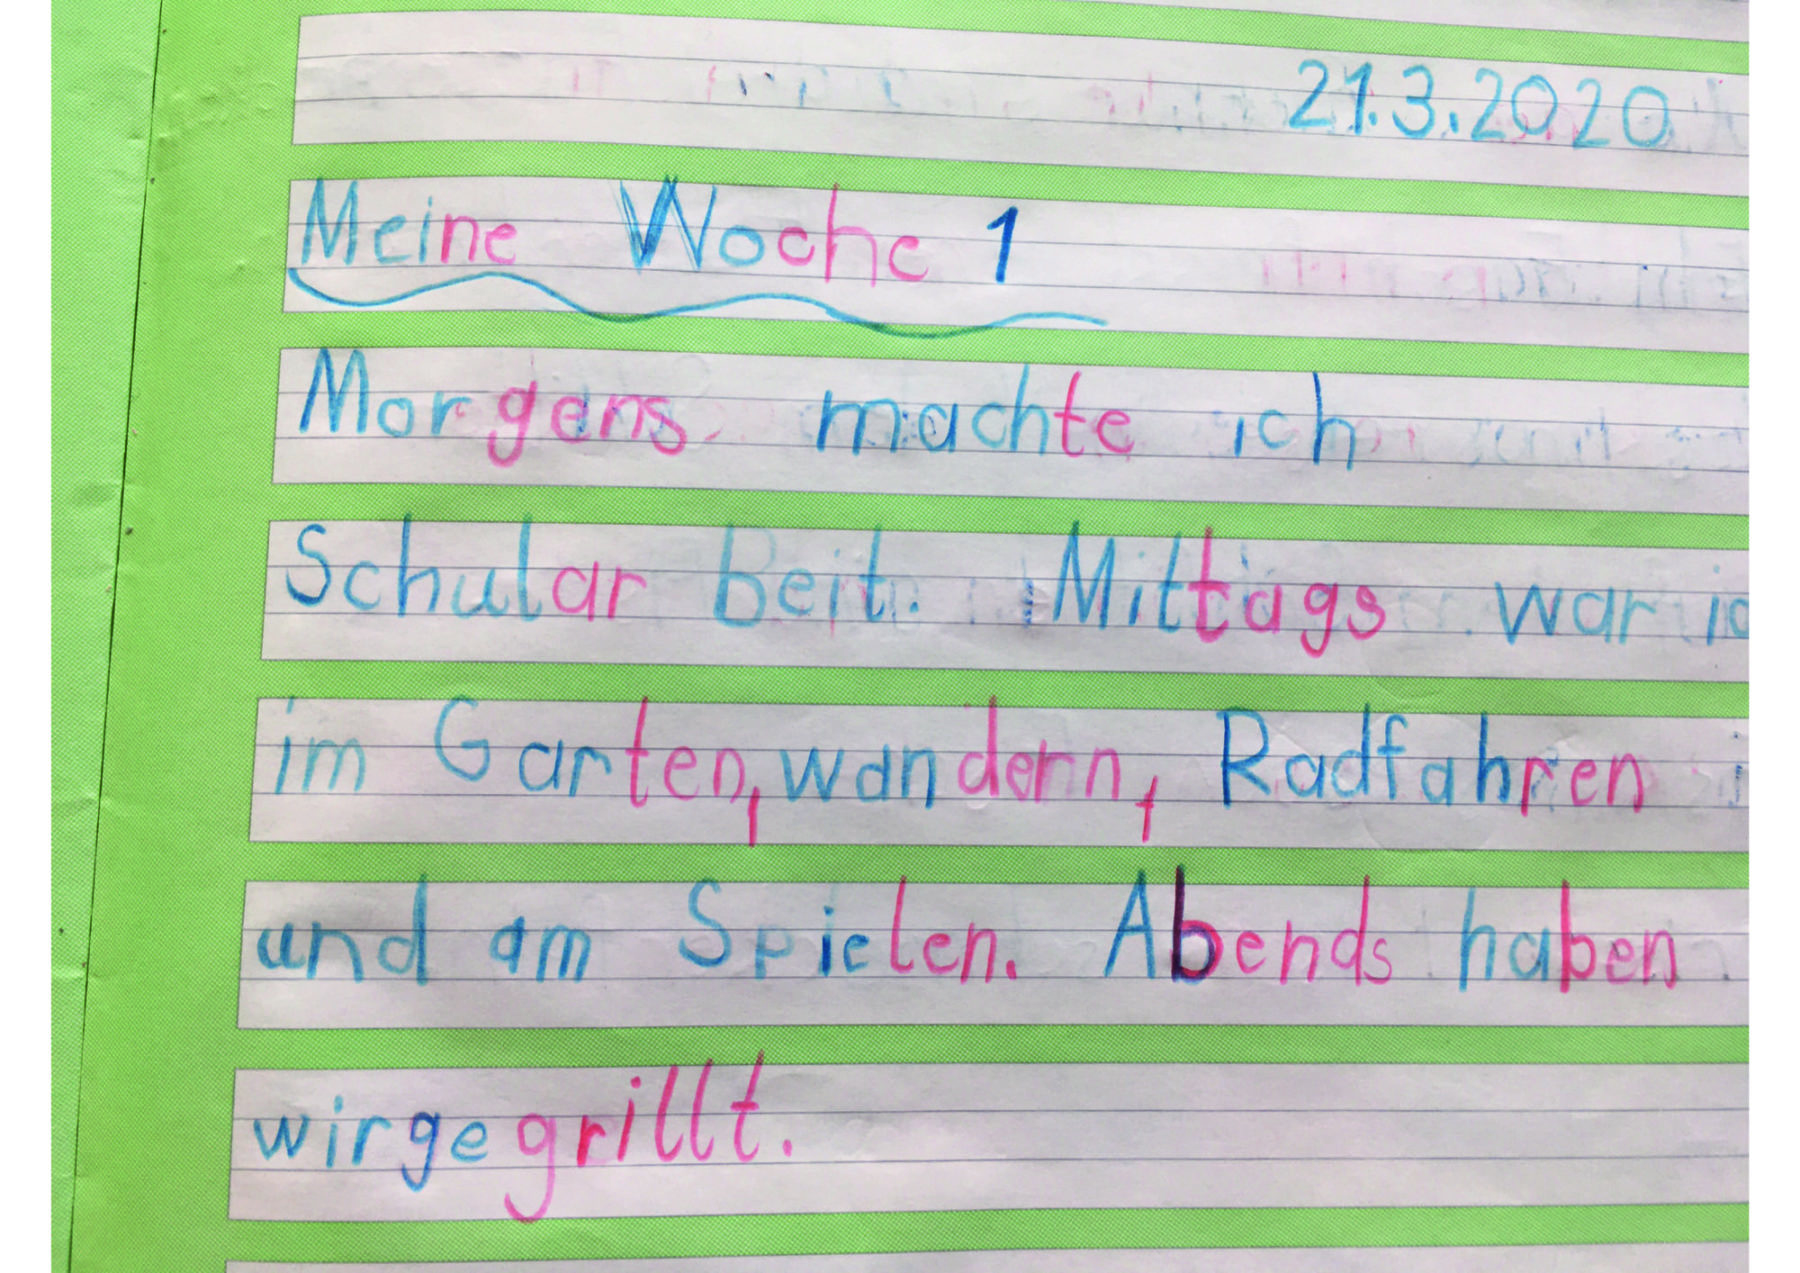 21.3.2020
Meine Woche 1
Morgens machte ich
Schular beit. Mittags war ic
im Garten, wandern, Radfahren
und am Spielen. Abends haben
wir gegrillt.